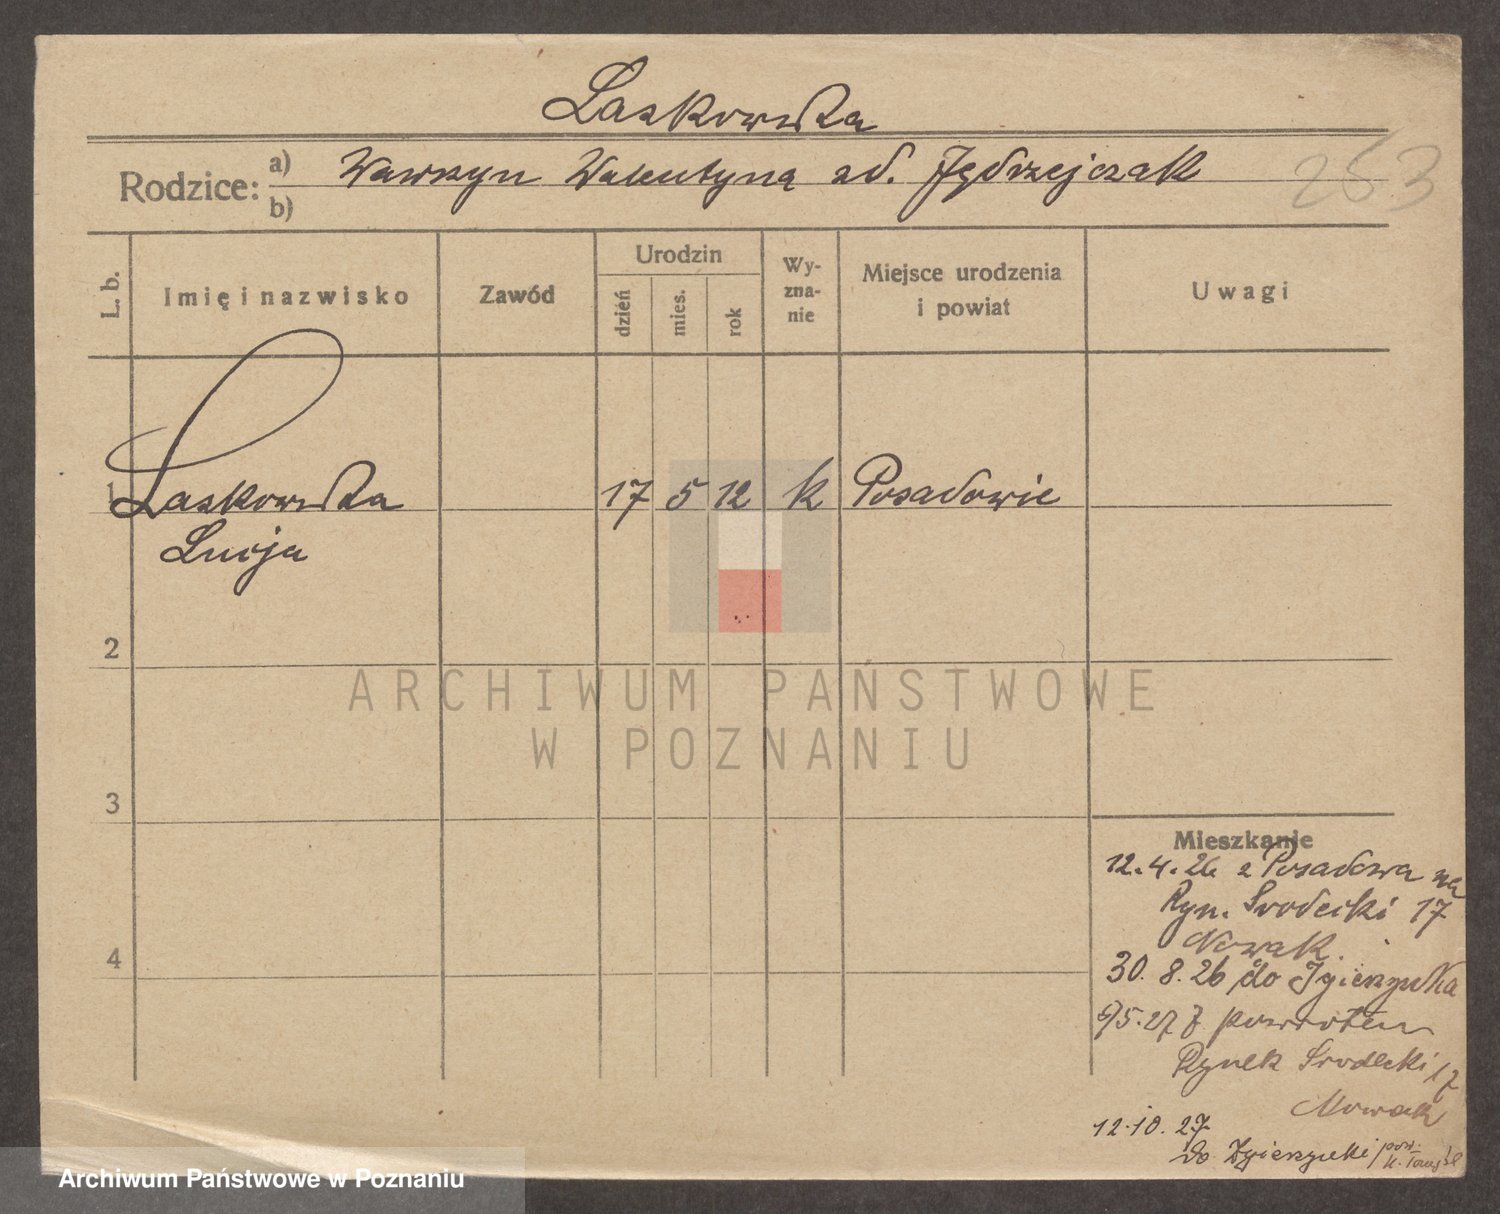 Laskowska
Rodzice: a) Wawrzyn Walentyna zd. Jędrzejczak
b)
253
L. b.
Imię i nazwisko
Zawód
Urodzin
dzień
mies.
rok
Wy-
zna-
nie
Miejsce urodzenia
i powiat
Uwagi
1 Laskowska 17 5 12 k Posadowie
Lucja
2
ARCHIWUM PAŃSTWOWE
W POZNANIU
3
Mieszkanie
12.4.26 z Posadowa na
Ryn. Srodecki 17
Nowak.
4
30.8.26 do
5.27 powrotem
Rynek Srodecki 17
Nowak
12.10.27
do
Archiwum Państwowe w Poznaniu